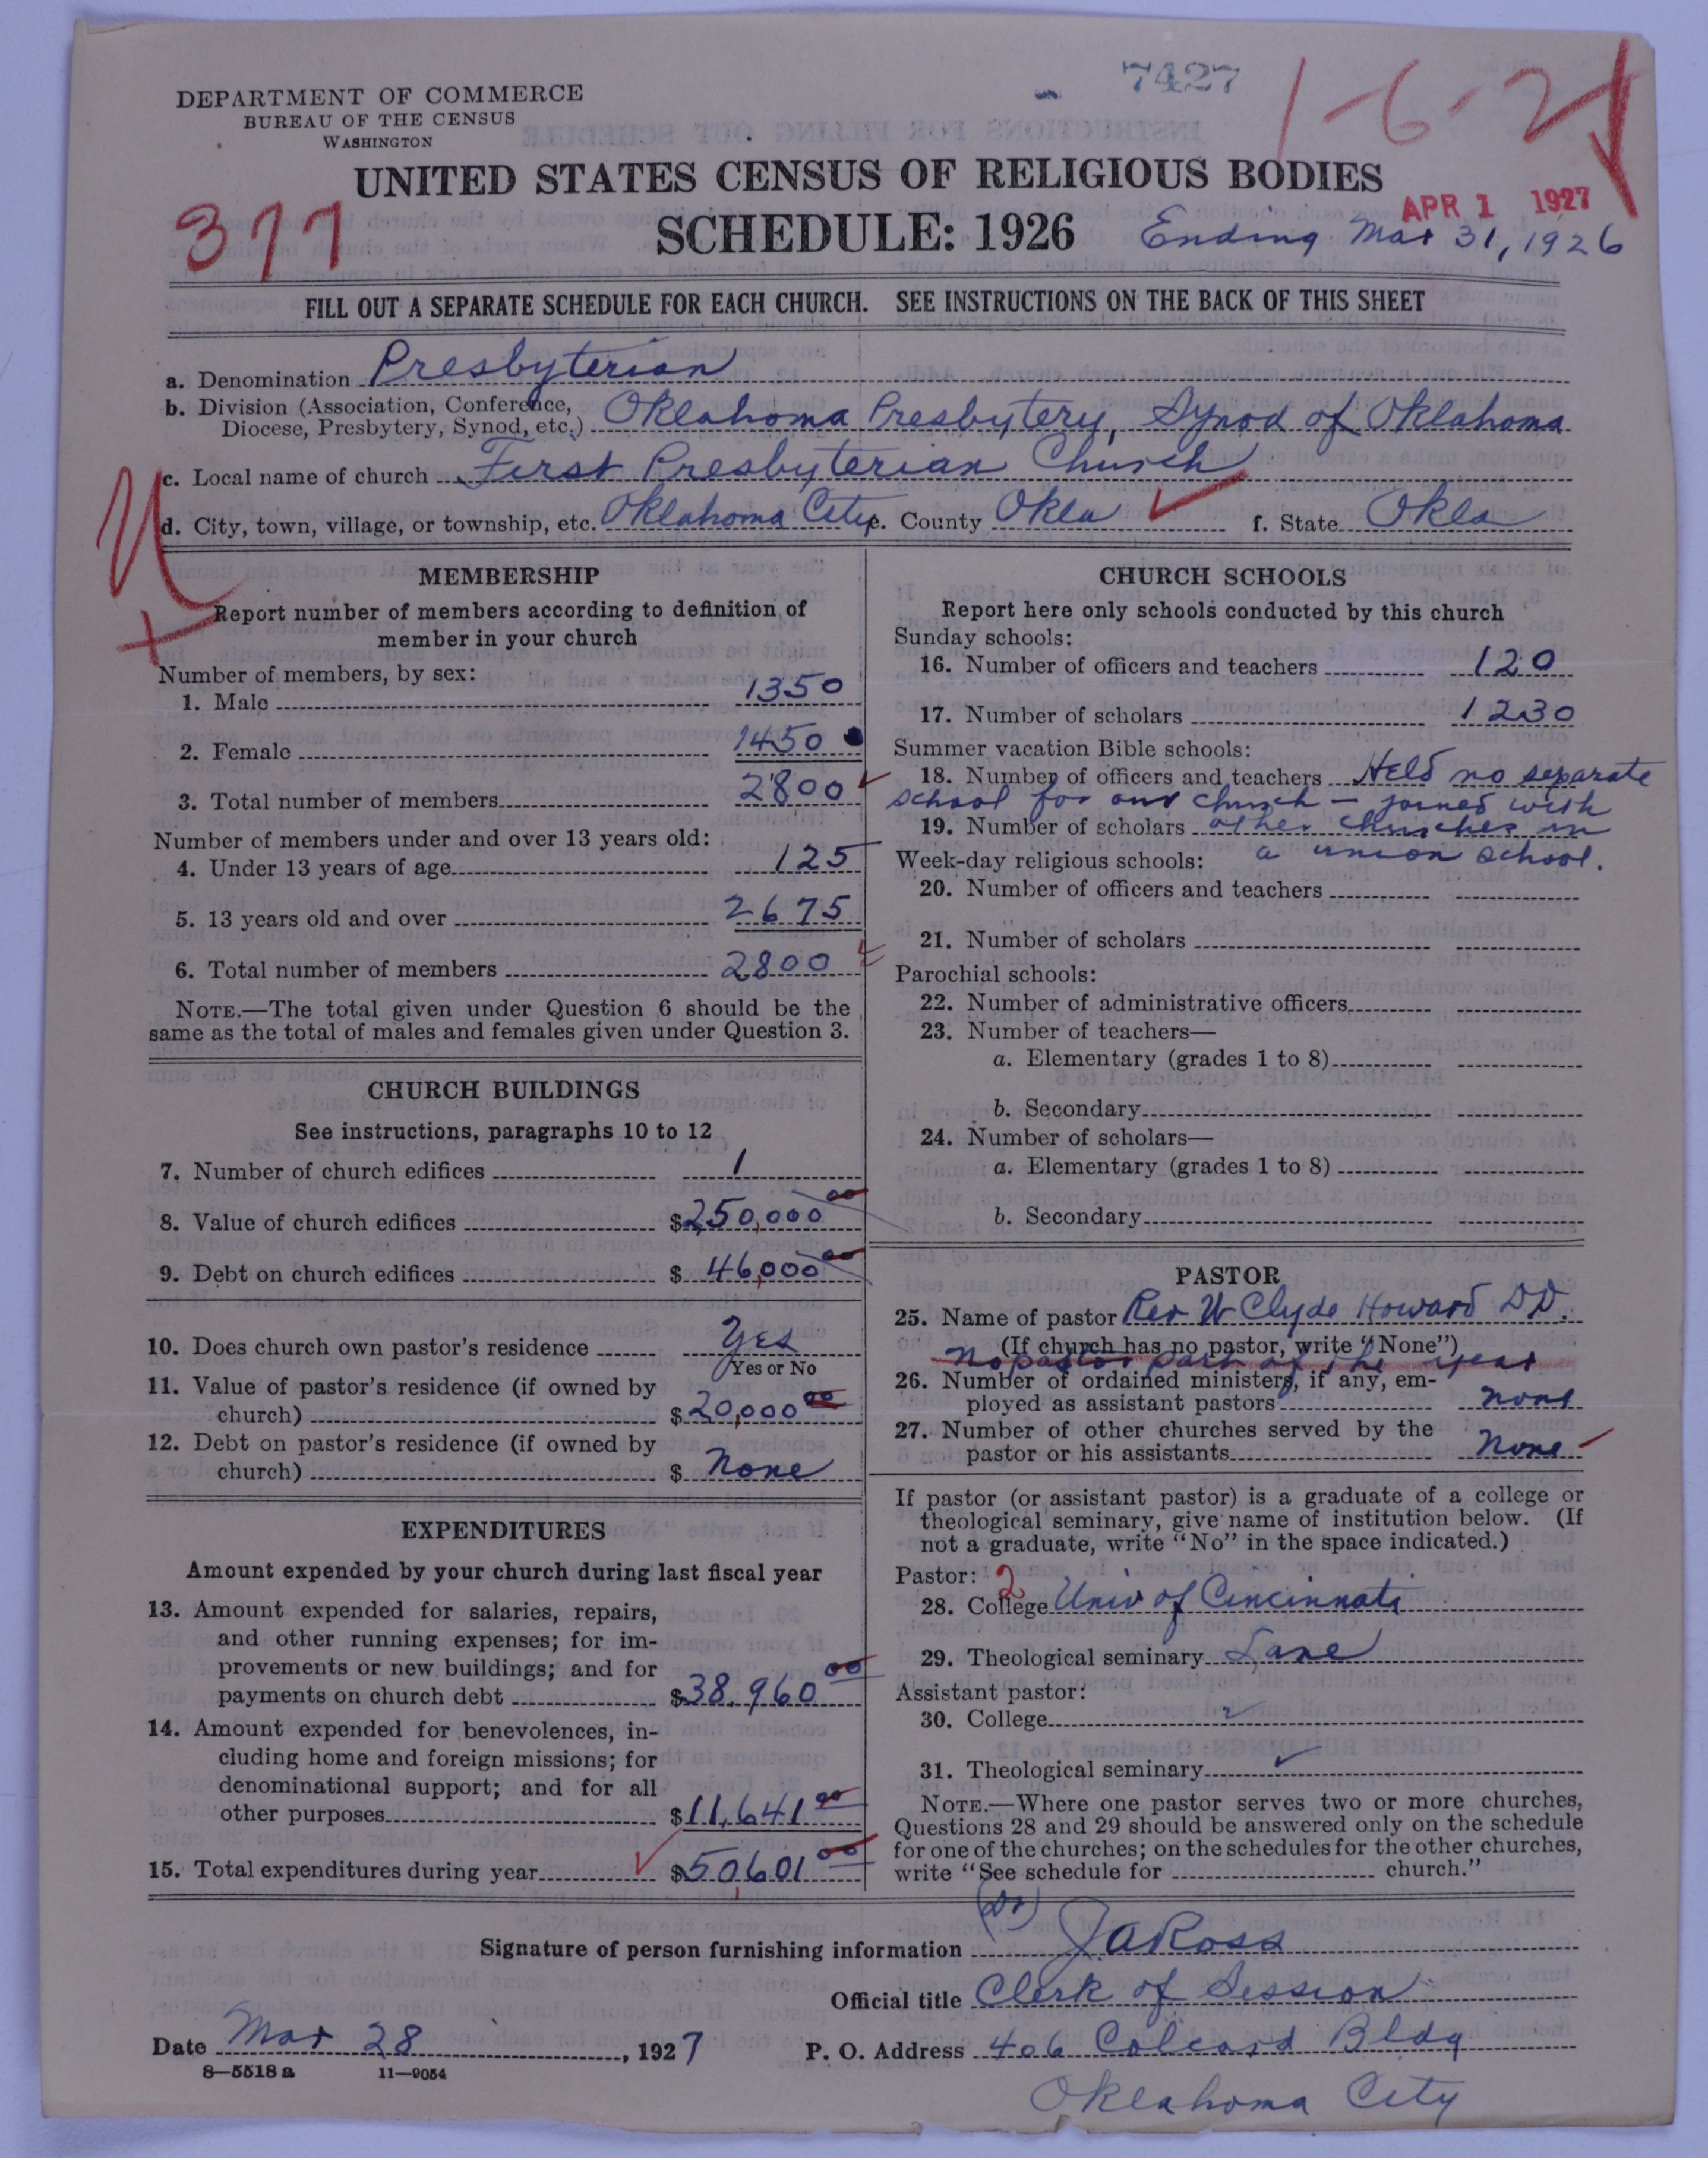 7427
1-6-21
DEPARTMENT OF COMMERCE
BUREAU OF THE CENSUS
WASHINGTON
UNITED STATES CENSUS OF RELIGIOUS BODIES
377
SCHEDULE: 1926
APR 1 1927
Ending Mar 31, 1926
FILL OUT A SEPARATE SCHEDULE FOR EACH CHURCH. SEE INSTRUCTIONS ON THE BACK OF THIS SHEET
a. Denomination Presbyterian
b. Division (Association, Conference,
Diocese, Presbytery, Synod, etc.) Oklahoma Presbytery, Synod of Oklahoma
c. Local name of church First Presbyterian Church
d. City, town, village, or township, etc. Oklahoma City e. County Okla f. State Okla
MEMBERSHIP
Report number of members according to definition of
member in your church
Number of members, by sex:
1. Male 1350
2. Female 1450
3. Total number of members 2800
Number of members under and over 13 years old:
4. Under 13 years of age 125
5. 13 years old and over 2675
6. Total number of members 2800
NOTE.—The total given under Question 6 should be the
same as the total of males and females given under Question 3.
CHURCH BUILDINGS
See instructions, paragraphs 10 to 12
7. Number of church edifices 1
8. Value of church edifices $250,000 00
9. Debt on church edifices $ 46,000 00
10. Does church own pastor's residence Yes
Yes or No
11. Value of pastor's residence (if owned by
church) $20,000 00
12. Debt on pastor's residence (if owned by
church) $ None
EXPENDITURES
Amount expended by your church during last fiscal year
13. Amount expended for salaries, repairs,
and other running expenses; for im-
provements or new buildings; and for
payments on church debt $38,960 00
14. Amount expended for benevolences, in-
cluding home and foreign missions; for
denominational support; and for all
other purposes $11,641 00
15. Total expenditures during year $50,601 00
CHURCH SCHOOLS
Report here only schools conducted by this church
Sunday schools:
16. Number of officers and teachers 120
17. Number of scholars 1230
Summer vacation Bible schools:
18. Number of officers and teachers Held no separate
school for our church — joined with
19. Number of scholars other churches in
Week-day religious schools: a union school.
20. Number of officers and teachers
21. Number of scholars
Parochial schools:
22. Number of administrative officers
23. Number of teachers—
a. Elementary (grades 1 to 8)
b. Secondary
24. Number of scholars—
a. Elementary (grades 1 to 8)
b. Secondary
PASTOR
25. Name of pastor Rev W Clyde Howard DD.
(If church has no pastor, write "None")
No pastor part of the year
26. Number of ordained ministers, if any, em-
ployed as assistant pastors none
27. Number of other churches served by the
pastor or his assistants None
If pastor (or assistant pastor) is a graduate of a college or
theological seminary, give name of institution below. (If
not a graduate, write "No" in the space indicated.)
Pastor: 2
28. College Univ of Cincinnati
29. Theological seminary Lane
Assistant pastor:
30. College
31. Theological seminary
NOTE.—Where one pastor serves two or more churches,
Questions 28 and 29 should be answered only on the schedule
for one of the churches; on the schedules for the other churches,
write "See schedule for church."
(Dr)
Signature of person furnishing information J A Ross
Official title Clerk of Session
Date Mar 28, 1927 P. O. Address 406 Colcord Bldg
8—5518 a 11—9054
Oklahoma City